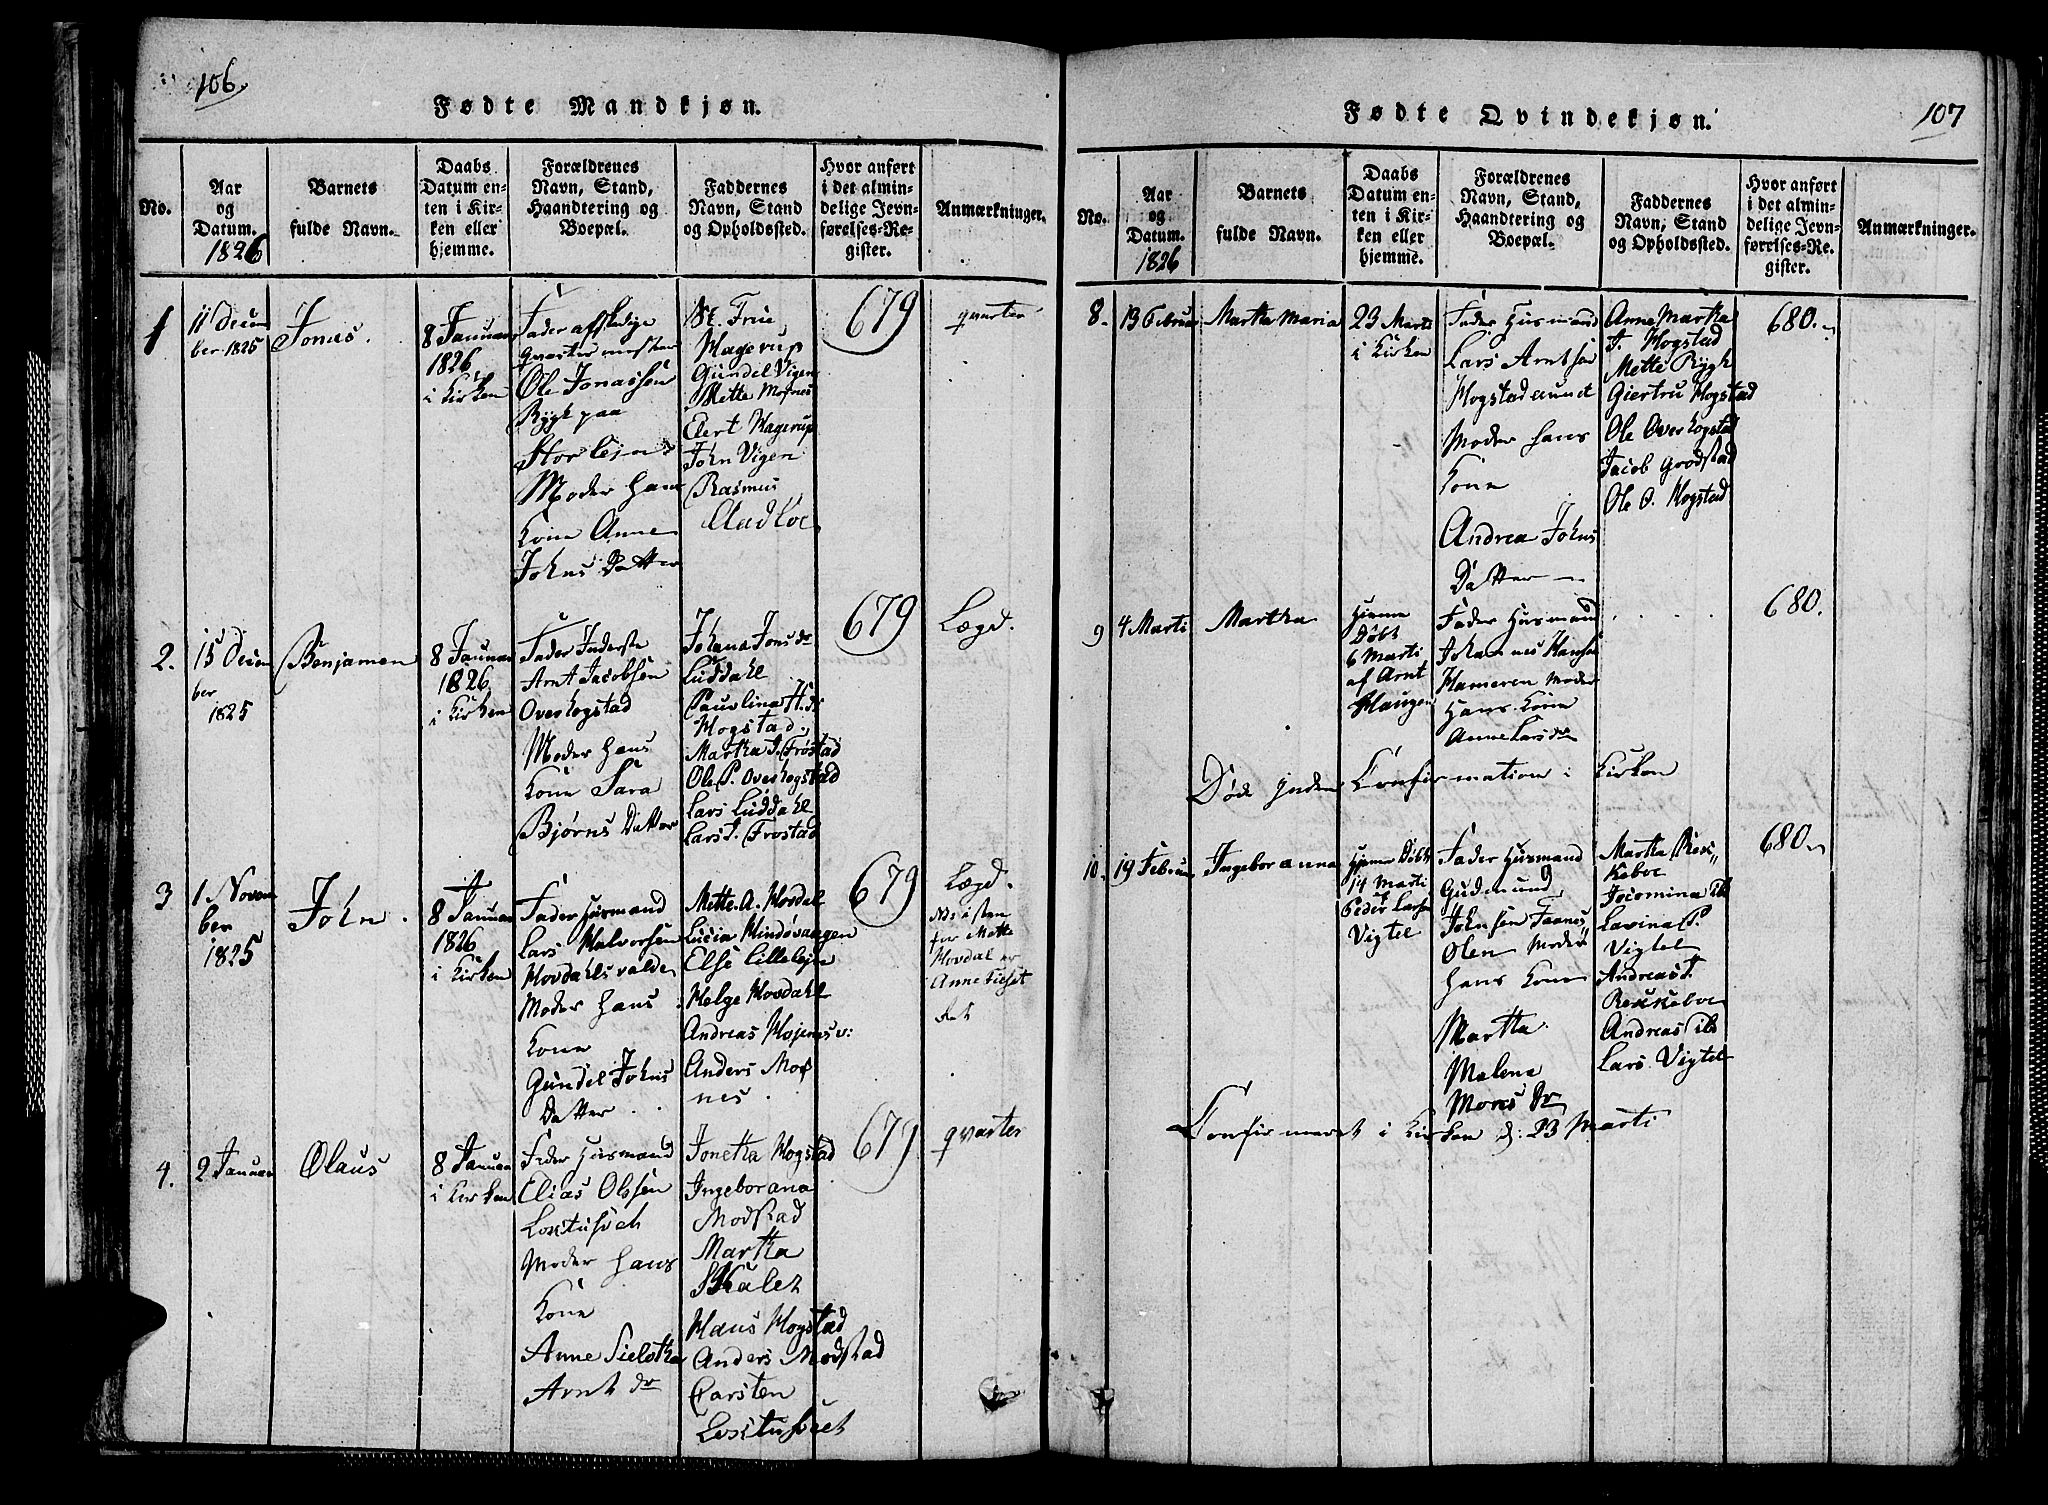 106.
Fødte Mandkjøn.
No.
Aar
og
Datum.
1826
Barnets
fulde Navn.
Daabs
Datum en-
ten i Kir-
ken eller
hjemme.
Forældrenes
Navn, Stand,
Haandtering og
Boepæl.
Faddernes
Navn, Stand
og Opholdssted.
Hvor anført
i det almin-
delige Jevn-
førelses-Re-
gister.
Anmærkninger.
1
11 Decem
ber 1825
Jonas.
8 Januar
1826
i Kirken
Fader afskedige
Ole Jonassen
Rygh paa
Storlejn
Moder hans
Kone Anne
Johns Datter
Frue
Hagerup
Gundel Vigen
Mette Mosnes
Elert Hagerup
John Vigen
Rasmus
679
qvarter
2.
15 Decem
ber
1825
Benjamen
8 Januar
1826
i Kirken
Fader
Arnt Jacobsen
Overhogstad
Moder hans
Kone Sara
Bjørns Datter
Johana Jons dr
Luddahl
Paulina H. dr
Hogstad.
Martha J. Frostad
Ole P. Overhogstad
Lars Luddahl
Lars J. Frostad
679
Lægd.
3
1 Novem
ber
1825
John.
8 Januar
1826
i Kirken
Fader Husmand
Lars Halvorsen
Hovdahlsvalde
Moder hans
Kone
Gundel Johns
Datter
Mette A. Hovdal
Lucia Hindøvangen
Else Lillelejn
Helge Hovdahl
Andreas Højemsv:
Anders Mos
nes
679
Lægd.
for Mette
Hovdal er
Anne
4.
2 Januar
Olaus
8 Januar
i Kirken
Fader Husmand
Elias Olssen
Moder hans
Kone
Anne
Arnt dr
Jonetha Hogstad
Ingeborana
Modstad
Martha
Skalet
Haus Hogstad
Anders Modstad
Carsten
679
qvarter
107
Fødte Qvindekjøn.
No.
Aar
og
Datum.
1826
Barnets
fulde Navn.
Daabs
Datum en-
ten i Kir-
ken eller
hjemme.
Forældrenes
Navn, Stand,
Haandtering og
Boepæl.
Faddernes
Navn, Stand
og Opholdssted.
Hvor anført
i det almin-
delige Jevn-
førelses-Re-
gister.
Anmærkninger.
8.
13 Februar
Martha Maria
23 Marti
i Kirken
Fader Husmand
Lars Arntsen
Hogstadaunet
Moder hans
Kone
Andrea Johns
Datter
Anne Martha
J. Hogstad
Mette Rygh
Giertru Hogstad
Ole Overhogstad
Jacob Grodstad
Ole O. Hogstad
680.
9
4 Marti
Martha
Hjeme
Døbt
6 Marti
af Arnt
Haugen
Fader Husmand
Johannes Hansen
Hameren Moder
Hans Kone
Anne Lars dr
680.
Døde Inden Confirmation i Kirken
10.
19 Februar
Ingeboranna
Hjeme Døbt
14 Marti
Peder Larsen
Vigtel
Fader Husmand
Gudmund
Johnsen Faanes
Olen Moder
Hans Kone
Martha
Malena
Mons Dr
Martha
Jocomina ib
Lavina P.
Vigtel
Andreas J.
Andreas ib
Lars Vigtel
680
Confirmeret i Kirken d: 23 Marti